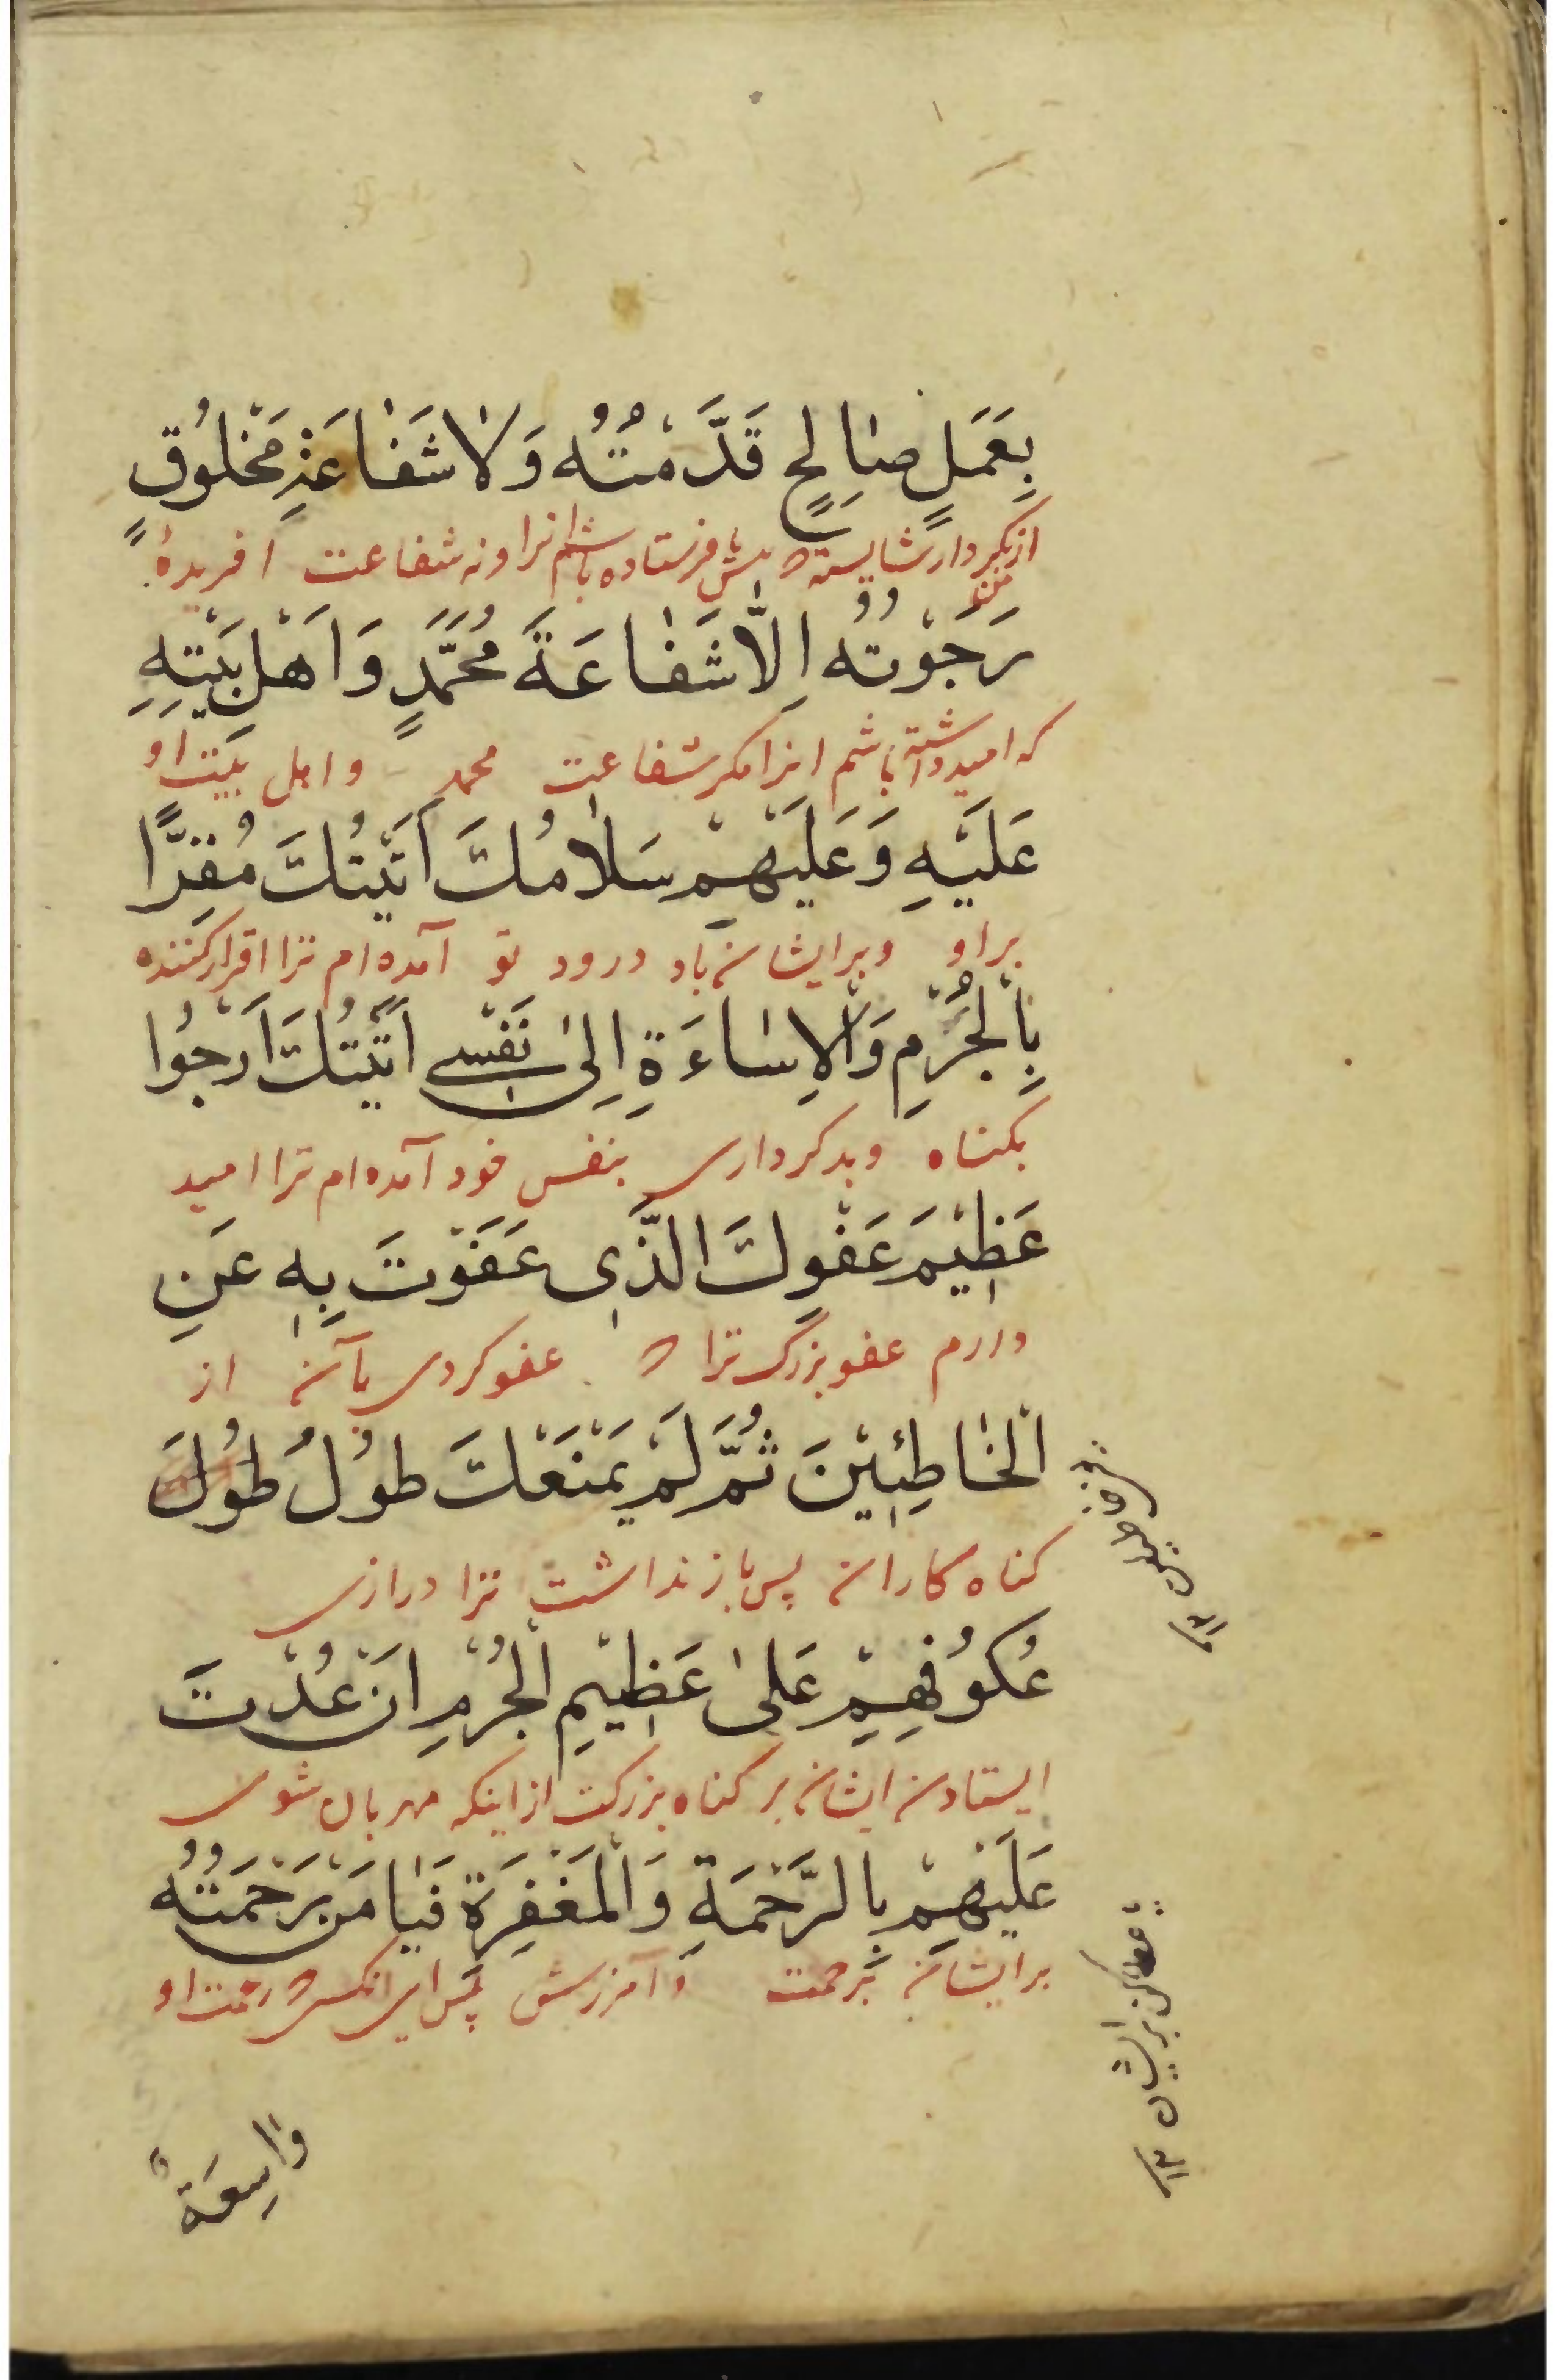 بِعَمَلٍ صٰالِحٍ قَدَّمْتُهُ وَلٰا شَفٰاعَةِ مَخْلُوقٍ
از کردار شایسته که پیش فرستاده باشم انرا و نه شفاعت افریدهٔ
رَجَوْتُهُ اِلَّا شَفٰاعَةَ مُحَمَّدٍ وَاَهْلِ بَيْتِهِ
که امید داشته باشم انرا مکر شفاعت محمد و اهل بیت او
عَلَيْهِ وَعَلَيْهِمْ سَلٰامُكَ اَتَيْتُكَ مُقِرًّا
بر او و بر ایشان باد درود تو آمده ام ترا اقرار کننده
بِالْجُرْمِ وَالْاِسٰاءَةِ اِلىٰ نَفْسي اَتَيْتُكَ اَرْجُوا
بکناه و بدکرداری بنفس خود آمده ام ترا امید
عَظِيْمَ عَفْوِكَ الَّذِى عَفَوْتَ بِهٖ عَنِ
دارم عفو بزرک ترا که عفو کردی بآن از
الْخٰاطِئِيْنَ ثُمَّ لَمْ يَمْنَعْكَ طوُلُ طوُلَ
کناه کاران پس باز نداشت ترا درازی
عُكوُفِهِمْ عَلىٰ عَظِيْمِ الْجُرْمِ اَنْ عُدْتَ
ایستادن ایشان بر کناه بزرکت از اینکه مهربان شوی
عَلَيْهِمْ بِالرَّحْمَةِ وَالْمَغْفِرَةِ فَيٰا مَنْ رَحْمَتُهُ
بر ایشان برحمت و آمرزش پس ای انکس که رحمت او
وٰاسِعَةٌ